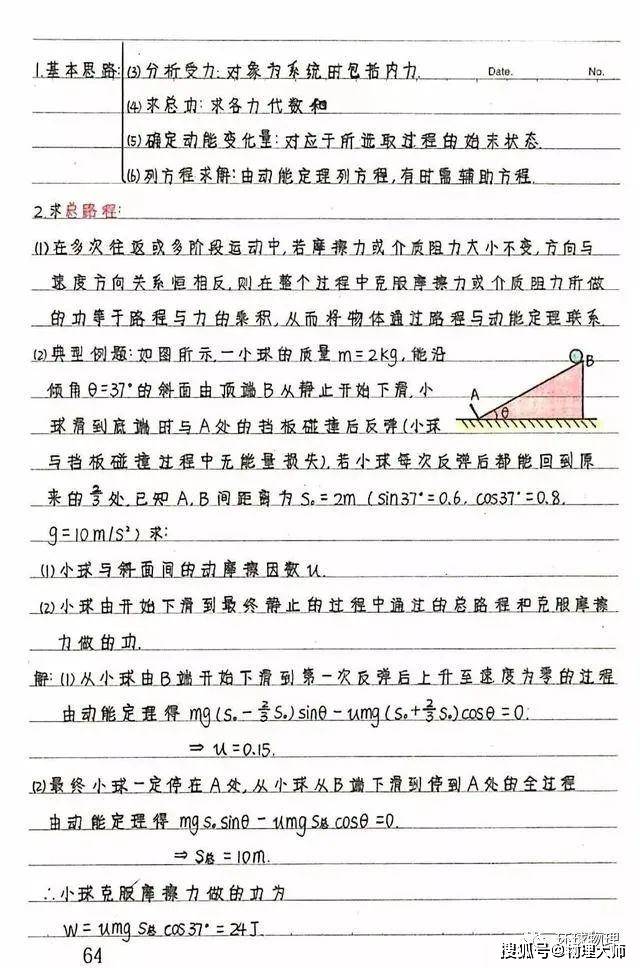 1.基本思路: (3)分析受力:对象为系统时包括内力. Date. No.
(4)求总功:求各力代数和
(5)确定动能变化量:对应于所选取过程的始末状态.
(6)列方程求解:由动能定理列方程,有时需辅助方程.
2.求总路程:
(1)在多次往返或多阶段运动中,若摩擦力或介质阻力大小不变,方向与
速度方向关系恒相反,则在整个过程中克服摩擦力或介质阻力所做
的功等于路程与力的乘积,从而将物体通过路程与动能定理联系.
(2)典型例题:如图所示,一小球的质量m=2kg,能沿
倾角θ=37°的斜面由顶端B从静止开始下滑,小
球滑到底端时与A处的挡板碰撞后反弹(小球
与挡板碰撞过程中无能量损失),若小球每次反弹后都能回到原
来的2/3处.已知A,B间距离为S₀=2m (sin37°=0.6, cos37°=0.8,
g=10m/s²)求:
A
B
θ
(1)小球与斜面间的动摩擦因数u.
(2)小球由开始下滑到最终静止的过程中通过的总路程和克服摩擦
力做的功.
解:(1)从小球由B端开始下滑到第一次反弹后上升至速度为零的过程
由动能定理得 mg(S₀-2/3S₀)sinθ-umg(S₀+2/3S₀)cosθ=0.
⇒ u=0.15.
(2)最终小球一定停在A处,从小球从B端下滑到停到A处的全过程
由动能定理得 mgS₀sinθ-umgS总cosθ=0.
⇒ S总=10m.
∴小球克服摩擦力做的功为
W=umgS总cos37°=24J
64
环球物理
搜狐号@物理大师